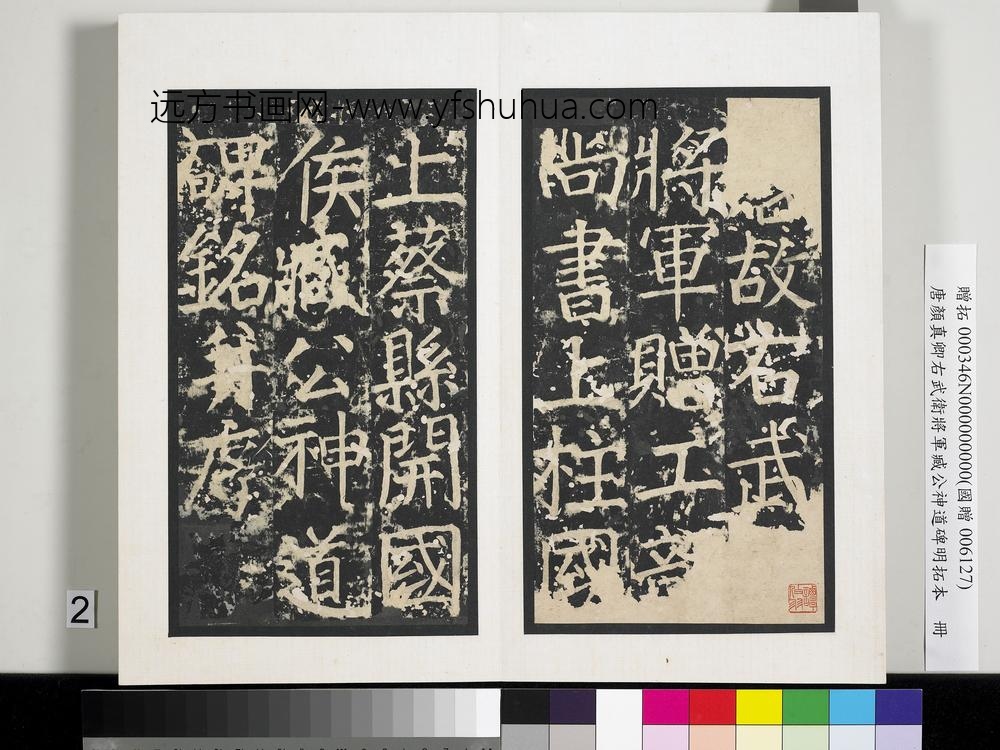 远方书画网-www.yfshuhua.com
故右武
將軍贈工部
尚書上柱國
上蔡縣開國
侯臧公神道
碑銘并序
贈拓 000346N000000000(國贈 006127)
唐顏真卿右武衛將軍臧公神道碑明拓本 冊
2